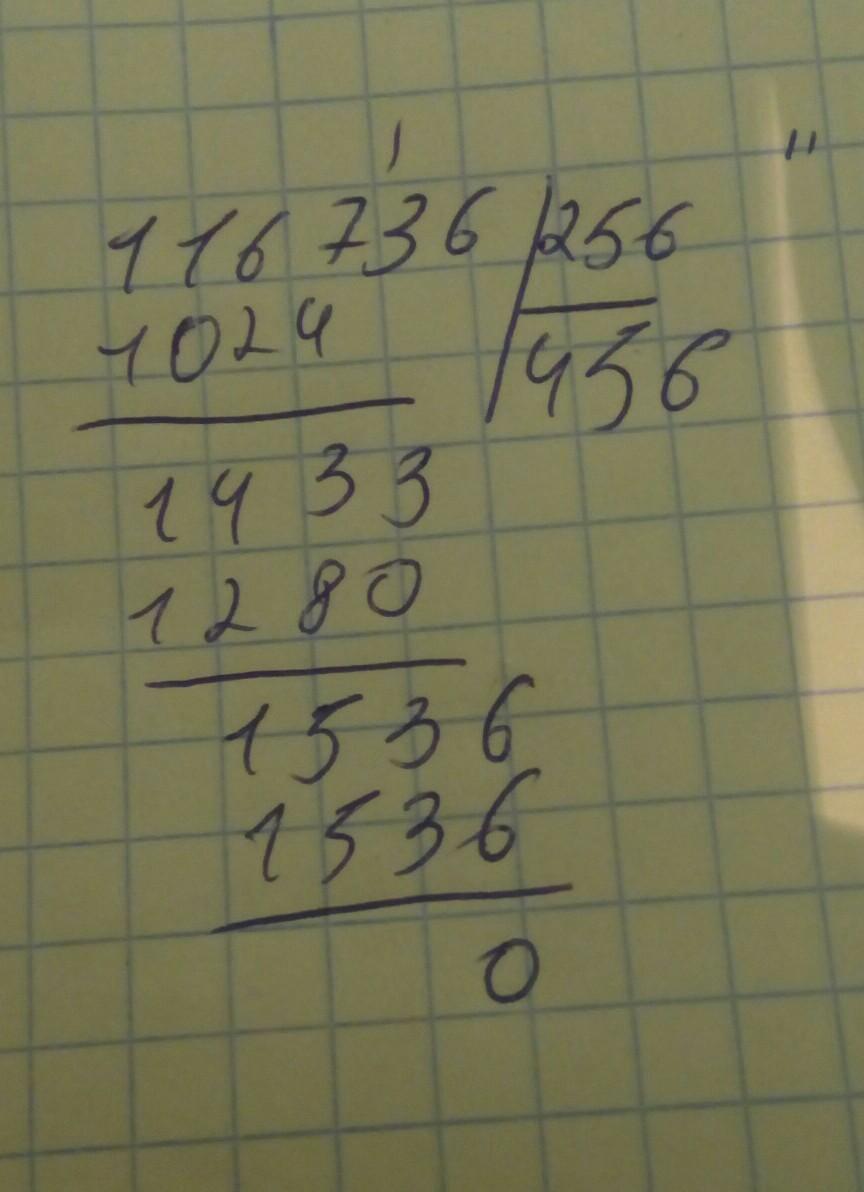 116 736 256
1024 456
1433
1280
1536
1536
0